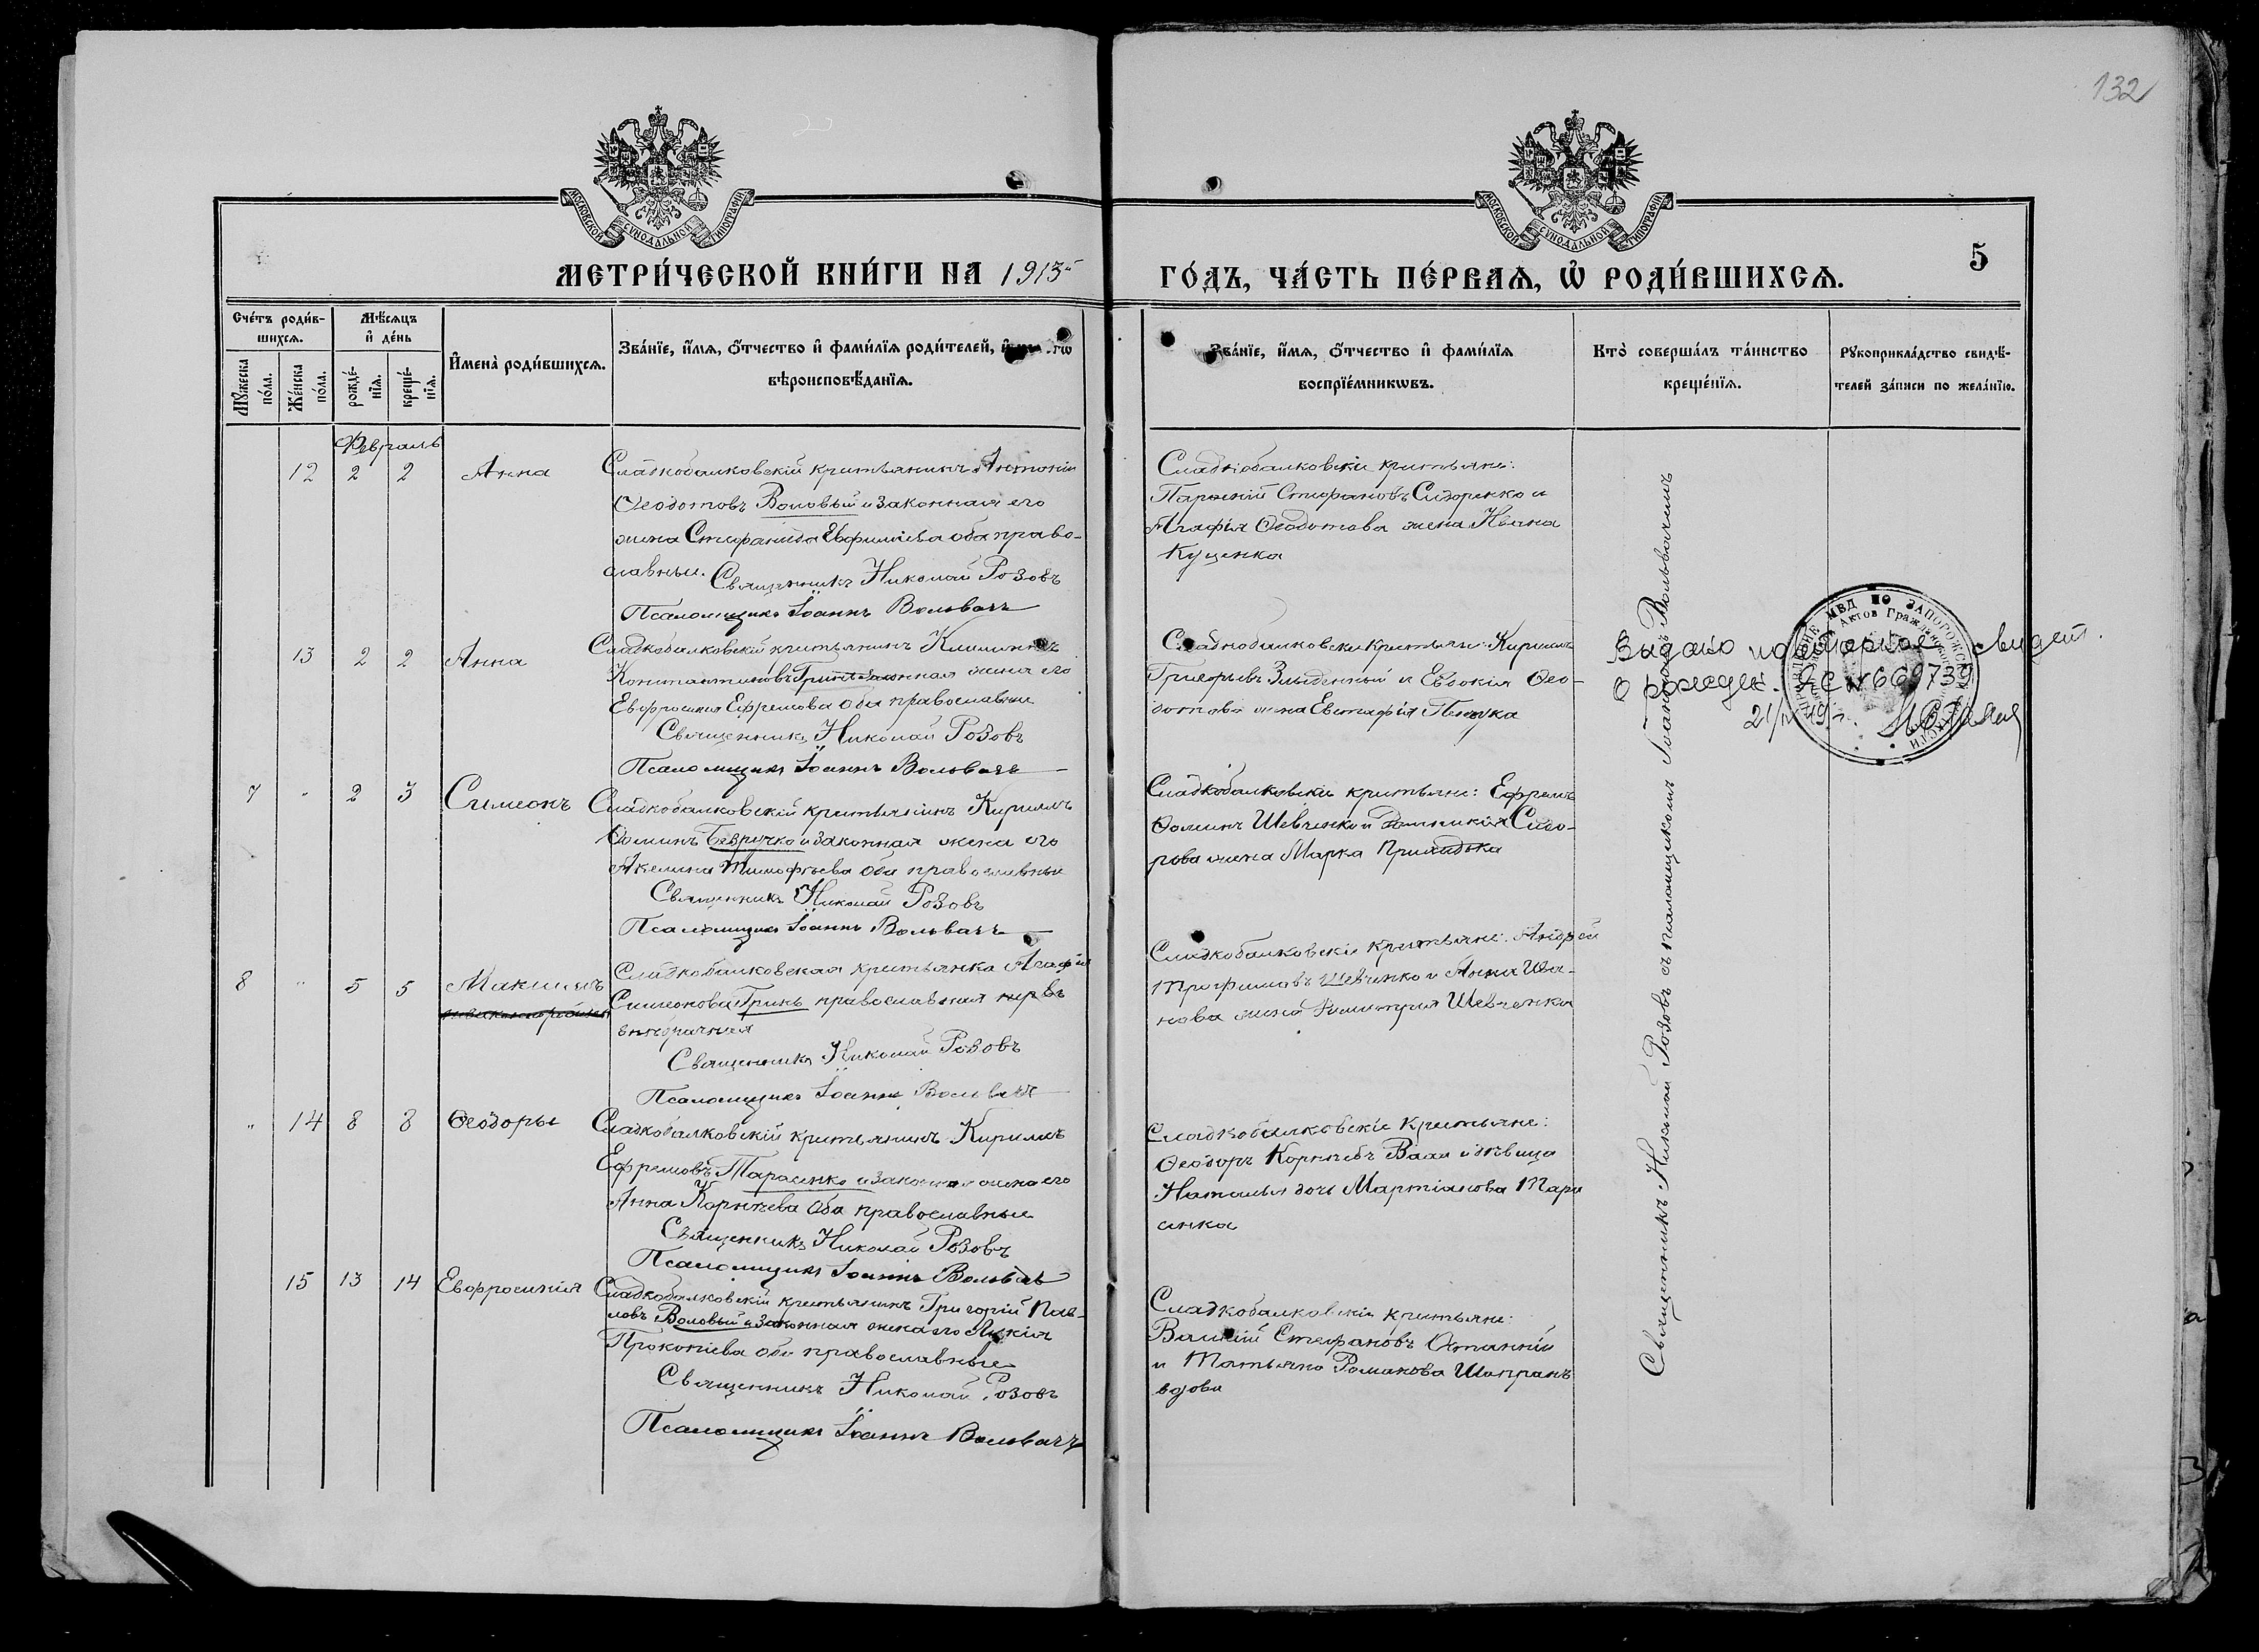 132
МОСКОВСКОЙ СУНОДАЛЬНОЙ ТИПОГРАФІИ
МОСКОВСКОЙ СУНОДАЛЬНОЙ ТИПОГРАФІИ
МЕТРИ́ЧЕСКОЙ КНИ́ГИ НА 1913
ГО́ДЪ, ЧА́СТЬ ПЕ́РВАѦ, Ѽ РОДИ́ВШИХСѦ.
5
Сче́тъ роди́в-
шихсѧ.
Мꙋ́жеска по́ла.
Же́нска по́ла.
Мѣ́сѧцъ
и҆ де́нь
рожде́-
нїѧ.
креще́-
нїѧ.
И҆мена̀ роди́вшихсѧ.
Зва́нїе, и҆́мѧ, ѻ҆́тчество и҆ фами́лїѧ роди́телей,
вѣроисповѣ́данїѧ.
Зва́нїе, и҆́мѧ, ѻ҆́тчество и҆ фами́лїѧ
воспрїе́мникѡвъ.
Кто̀ соверша́лъ та́инство
креще́нїѧ.
Рꙋкоприкла́дство свидѣ́-
телей за́писи по жела́нїю.
Февраль
12 2 2 Анна
Сладкобалковскій крестьянинъ Антоній
Ѳеодотовъ Воловый и законная его
жена Стефанида Евфиміева оба право-
славные. Священникъ Николай Розовъ
Псаломщикъ Іоаннъ Вольвачъ
Сладкобалковскіе крестьяне:
Стефановъ Сидоренко и
Агафія Ѳеодотова жена Ивана
Куценка
13 2 2 Анна
Сладкобалковскій крестьянинъ
Константиновъ Гринь законная жена его
Евфросинія Ефремова оба православные
Священникъ Николай Розовъ
Псаломщикъ Іоаннъ Вольвачъ
Сладкобалковскіе крестьяне: Кириллъ
Григорьевъ и Евдокія Ѳео-
дотова жена Евстафія
7 " 2 3 Симеонъ
Сладкобалковскій крестьянинъ Кириллъ
Ѳоминъ Безручко и законная жена его
Акелина Тимофѣева оба православные
Священникъ Николай Розовъ
Псаломщикъ Іоаннъ Вольвачъ
Сладкобалковскіе крестьяне: Ефремъ
Ѳоминъ Шевченко и Домникія Сидо-
рова жена Марка
8 " 5 5 Максимъ
Сладкобалковская крестьянка Агафія
Симеонова Гринь православная
внѣбрачная
Священникъ Николай Розовъ
Псаломщикъ Іоаннъ Вольвачъ
Сладкобалковскіе крестьяне: Андрей
Трофимовъ Шевченко и Анна Ива-
нова жена Димитрія Шевченка
" 14 8 8 Ѳеодоры
Сладкобалковскій крестьянинъ Кириллъ
Ефремовъ Тарасенко и законная жена его
Анна Корнѣева оба православные
Священникъ Николай Розовъ
Псаломщикъ Іоаннъ Вольвачъ
Сладкобалковскіе крестьяне:
Ѳеодоръ Корнѣевъ и дѣвица
Наталья дочь Мартіанова Тара
сенка
15 13 14 Евфросинія
Сладкобалковскій крестьянинъ Григорій Пав-
ловъ Воловый и законная жена его
Прокопіева оба православные
Священникъ Николай Розовъ
Псаломщикъ Іоаннъ Вольвачъ
Сладкобалковскіе крестьяне:
Василій Стефановъ
и Татьяна Романова Шапранъ
вдова
Священникъ Николай Розовъ съ псаломщикомъ Іоанномъ Вольвачемъ
Выдано повторное свидет.
о рожден. ЯС № 669739
МВД ПО ЗАПОРОЖСКОЙ
Актов Гражданского